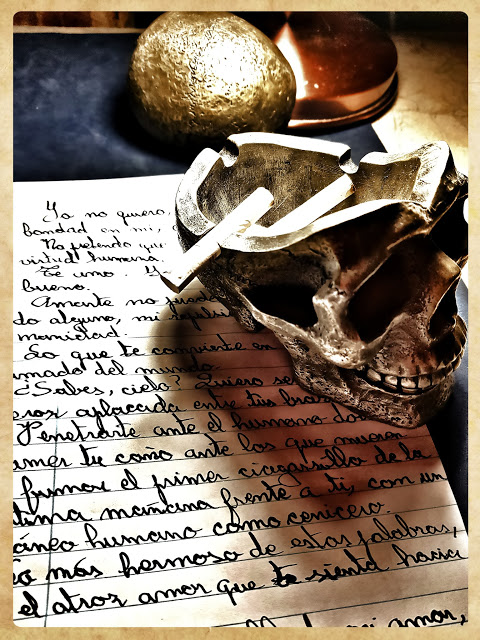 Ya no quiero,
bondad en mi,
No pretendo que
virtud humana.
Te amo. Y
bueno.
Amante no puedo
do alguno, mi repulsi
manidad.
Lo que te convierte en
amado del mundo.
¿Sabes, cielo? Quiero se
eroz aplacada entre tus bra
Penetrarte ante el humano do
amer tu coño ante los que mueren
fumar el primer cigarrillo de la
ltima mañana frente a ti, con un
áneo humano como cenicero.
Lo más hermoso de estas palabras,
el atroz amor que te siento hacia
amor,